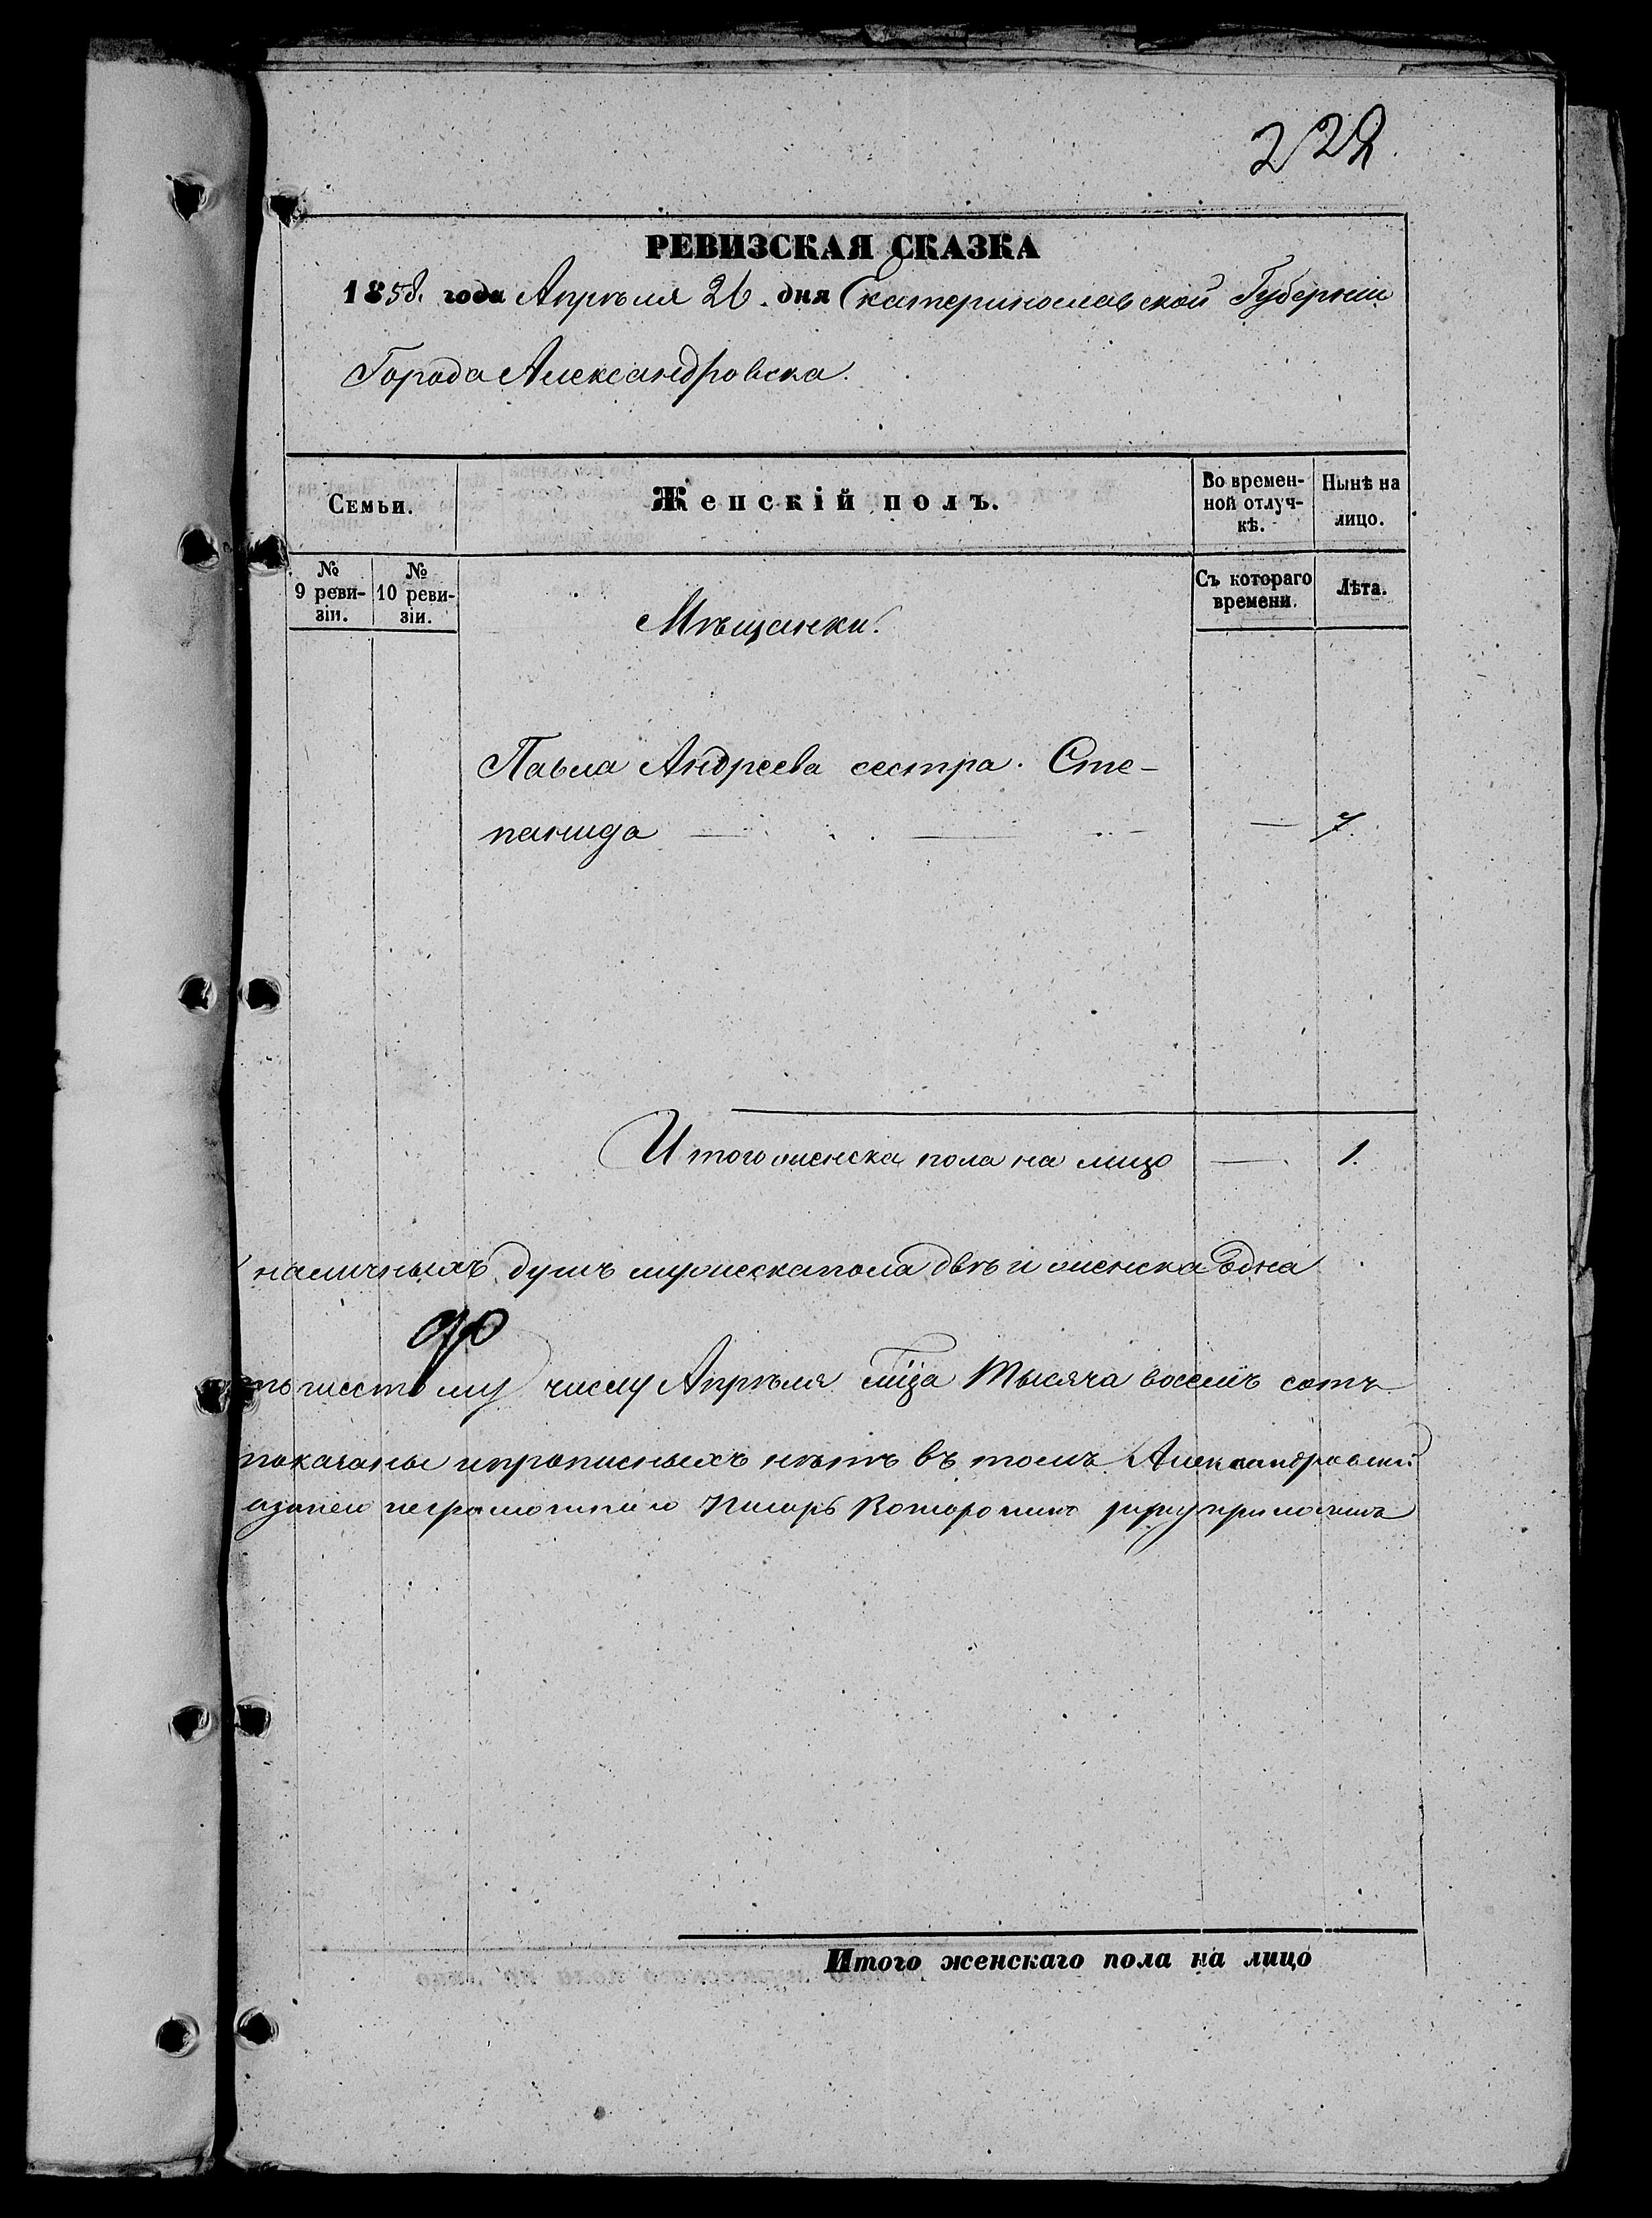 222
РЕВИЗСКАЯ СКАЗКА
1858. года Апрѣля 26. дня Екатеринославской Губерніи
Города Александровска.
Семьи.
Женскій полъ.
Во времен-
ной отлуч-
кѣ.
Нынѣ на
лицо.
№
9 реви-
зіи.
№
10 реви-
зіи.
Съ котораго
времени.
Лѣта.
Мѣщанки.
Павла Андреева сестра. Сте-
панида — — — 7.
Итого женска пола на лицо — 1.
наличныхъ душъ мужеска пола двѣ и женска Одна
шестому числу Апрѣля Тысяча восемь сотъ
показаны и прописныхъ нѣтъ въ томъ Александровскій
Писарь руку приложилъ
Итого женскаго пола на лицо